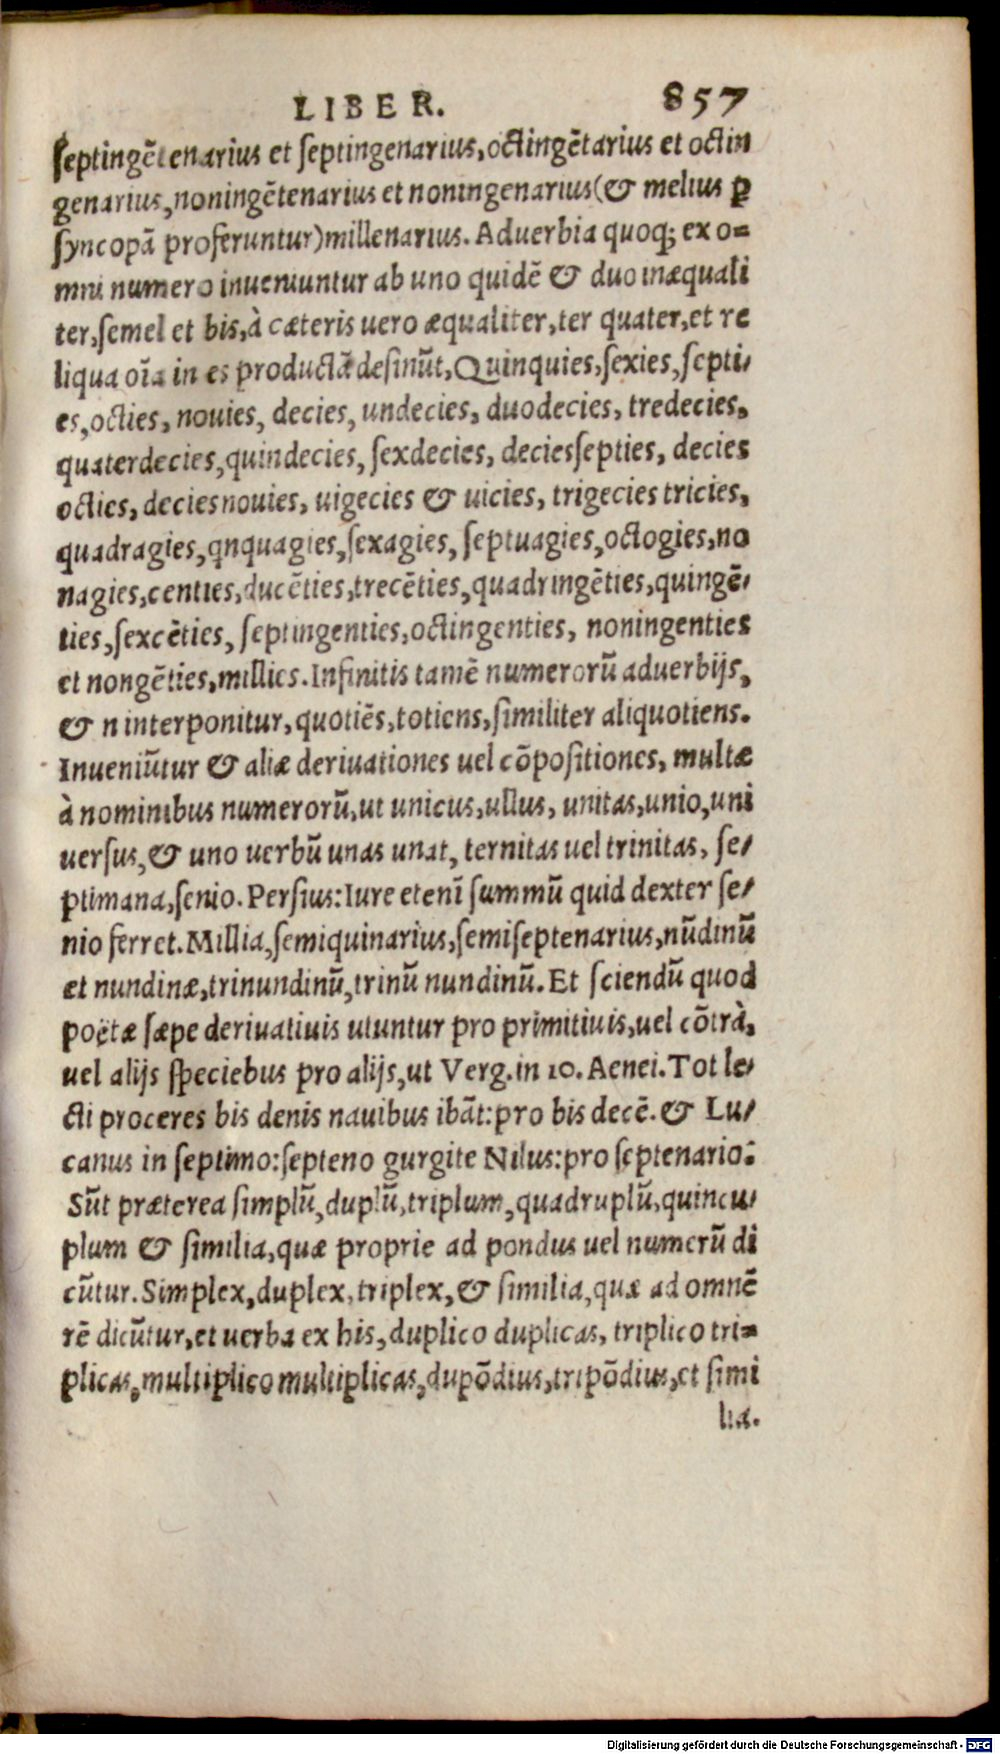 LIBER. 857
septingētenarius et septingenarius, octingētarius et octin
genarius, noningētenarius et noningenarius (& melius ꝑ
syncopā proferuntur) millenarius. Aduerbia quoq; ex o=
mni numero inueniuntur ab uno quidē & duo inæquali
ter, semel et bis, à cæteris uero æqualiter, ter quater, et re
liqua oīa in es productā desinūt, Quinquies, sexies, septi-
es, octies, nouies, decies, undecies, duodecies, tredecies,
quaterdecies, quindecies, sexdecies, deciessepties, decies
octies, deciesnouies, uigecies & uicies, trigecies tricies,
quadragies, qnquagies, sexagies, septuagies, octogies, no
nagies, centies, ducēties, trecēties, quadringēties, quingē-
ties, sexcēties, septingenties, octingenties, noningenties
et nongēties, millies. Infinitis tamē numerorū aduerbijs,
& n interponitur, quotiēs, totiens, similiter aliquotiens.
Inueniūtur & aliæ deriuationes uel cōpositiones, multæ
à nominibus numerorū, ut unicus, ullus, unitas, unio, uni
uersus, & uno uerbū unas unat, ternitas uel trinitas, se-
ptimana, senio. Persius: Iure etenī summū quid dexter se-
nio ferret. Millia, semiquinarius, semiseptenarius, nūdinū
et nundinæ, trinundinū, trinū nundinū. Et sciendū quod
poëtæ sæpe deriuatiuis utuntur pro primitiuis, uel cōtrà,
uel alijs speciebus pro alijs, ut Verg. in 10. Aenei. Tot le-
cti proceres bis denis nauibus ibāt: pro bis decē. & Lu-
canus in septimo: septeno gurgite Nilus: pro septenario:
Sūt præterea simplū, duplū, triplum, quadruplū, quincu-
plum & similia, quæ proprie ad pondus uel numerū di
cūtur. Simplex, duplex, triplex, & similia, quæ ad omnē
rē dicūtur, et uerba ex his, duplico duplicas, triplico tri=
plicas, multiplico multiplicas, dupōdius, tripōdius, et simi
lia.
Digitalisierung gefördert durch die Deutsche Forschungsgemeinschaft - DFG